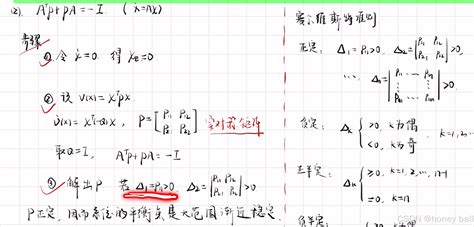 (2). AᵀP+PA=-I. (ẋ=Ax)
步骤
① 令 ẋ=0. 得 xe=0
② 设 V(x)=xᵀPx
V̇(x)=xᵀ(-Q)x, P=[P11 P12 P21 P22] 实对称矩阵
取Q=I, AᵀP+PA=-I
③ 解出P 若 Δ1=P11>0 Δ2=|P11 P12 P21 P22|>0
P正定, 因而系统的平衡点是大范围渐近稳定.
赛尔维斯特准则
正定: Δ1=P11>0, Δ2=|P11 P12 P21 P22|>0,
..., Δn=|P11 ... P1n ⋮ ⋮ Pn1 ... Pnn|>0.
负定: Δk {>0, k为偶 <0, k为奇 k=1,2,...
半正定: Δk {≥0, k=1,2,...,n-1 =0, k=n
负半定:
CSDN @honey ball